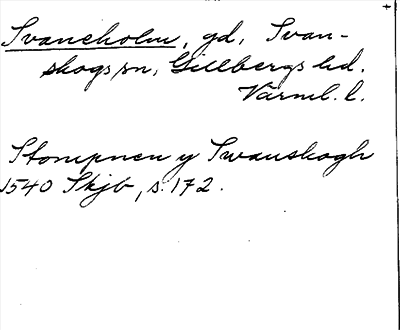 Svaneholm, gd, Svan-
skogs sn, Gillbergs hd.
Värml. l.
Stompnen y Swanskogh
1540 Skjb, s. 172.